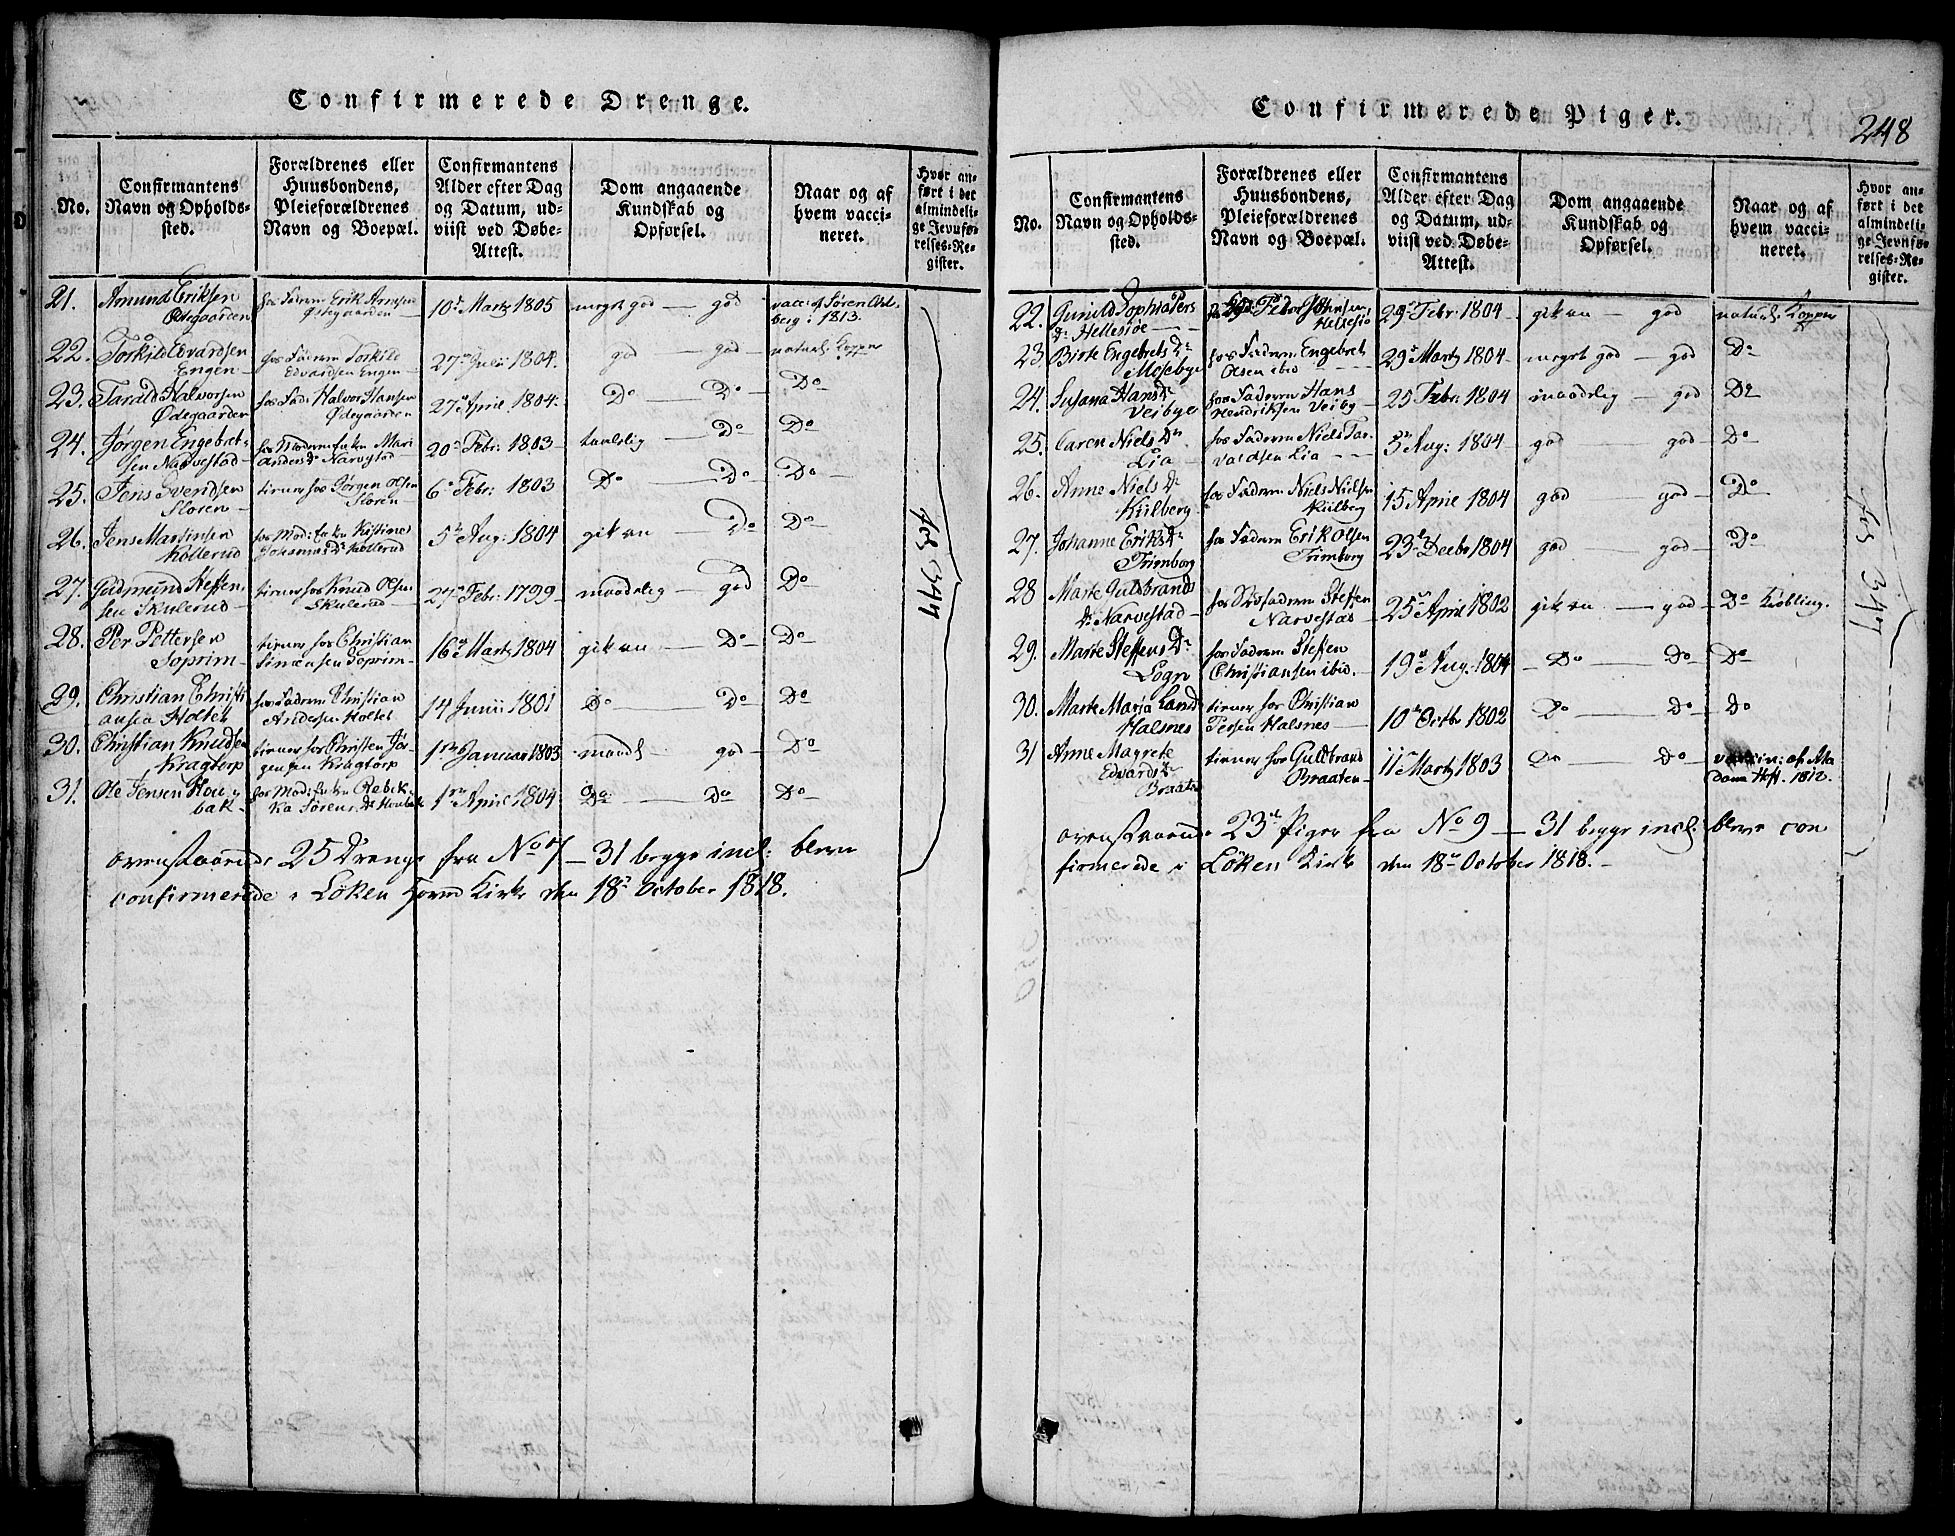 Confirmerede Drenge.
No.
Confirmantens
Navn og Opholds-
sted.
Forældrenes eller
Huusbondens,
Pleieforældrenes
Navn og Boepæl.
Confirmantens
Alder efter Dag
og Datum, ud-
viist ved Døbe-
Attest.
Dom angaaende
Kundskab og
Opførsel.
Naar og af
hvem vacci-
neret.
Hvor an-
ført i det
almindeli-
ge Jevnfø-
relses-Re-
gister.
21. Amund Eriksen
Ødegaarden
hos Faderen Erik
10de Martz 1805
meget god — god
vacc: af Søren
berg: 1813.
22. Torkild Edvardsen
Engen
hos Faderen Torkild
Edvardsen Engen
27de Julii 1804.
god — god
naturl. Kopper
23. Tarald Halvorsen
Ødegaarden
hos Fad: Halvor Hansen
Ødegaarden
27de April 1804.
Do — Do
Do
24. Jørgen Engebret-
sen Narvestad
hos Moderen Enken Mari
Anders Dr Narvestad
20de Febr: 1803
taalelig — Do
Do
25. Jens Svendsen
Floren
tiener hos Jørgen Olsen
Floren
6te Febr: 1803
Do — Do
Do
26. Jens Martinsen
Kollerud
hos Mod: Enken Kistine
Johannes Dr Kollerud
5te Aug: 1804
gik an — Do
Do
27. Gudmund Steffen-
sen Skulerud
tiener hos Knud Olsen
Skulerud
27de Febr: 1799
maadelig — god
Do
28. Per Pettersen
Soprim
tiener hos Christian
Simensen Soprim
16de Martz 1804
gik an — Do
Do
29. Christian Christi
ansen Holtet
hos Faderen Christian
Andersen Holtet
14 Junii 1801
Do — Do
Do
30. Christian Knudsen
Kragtorp
tiener hos Christen Jør-
gensen Kragtorp
1ste Januar 1803
maadel — god
Do
31. Ole Jensen Hou-
bak
hos Mod: Enken Rebek-
ka Sørens Dr Houbak
1ste April 1804
Do — Do
Do
Fol: 347
ovenstaaende 25 Drenge fra No 7 — 31 begge incl: bleve
confirmerede i Løken Hoved Kirke den 18de October 1818.
Confirmerede Piger.
248
No.
Confirmantens
Navn og Opholds-
sted.
Forældrenes eller
Huusbondens,
Pleieforældrenes
Navn og Boepæl.
Confirmantens
Alder efter Dag
og Datum, ud-
viist ved Døbe-
Attest.
Dom angaaende
Kundskab og
Opførsel.
Naar og af
hvem vacci-
neret.
Hvor an-
ført i det
almindeli-
ge Jevnfø-
relses-Re-
gister.
22. Gunild Sophia Pers
Dr Hellesiøe
Peter Johnsen
Hellesiø
29de Febr: 1804
gik an — god
naturl. Kopper
23. Birte Engebrets Dr
Mosebye
hos Faderen Engebret
Olsen ibid
29de Martz 1804
meget god — god
Do
24. Susana Hans Dr
Veibye
hos Faderen Hans
Hendriksen Veiby
25 Febr: 1804
maadelig — god
Do
25. Caren Niels Dr
Lia
hos Faderen Niels Tar
valdsen Lia
5te Aug: 1804
god — god
Do
26. Anne Niels Dr
Külberg
hos Faderen Niels Nielsen
Külberg
15 April 1804
god — god
Do
27. Johanne Eriks Dr
Trimborg
hos Faderen Erik Olsen
Trimborg
23de Decbr 1804
god — god
Do
28 Marte Guldbrands
Dr Narvestad
hos Steffen
Narvestad
25de April 1802
gik an — god
Do Kiøbling.
29. Marte Steffens Dr
Sogn
hos Faderen Steffen
Christiansen ibid.
19de Aug: 1804
Do — Do
Do
30. Marte Maria Land
Halsnes
tiener hos Christian
Persen Halsnes
10de Octbr 1802
Do — Do
Do
31 Anne Magrete
Edvards Dr
Braaten
tiener hos Guldbrand
Braaten
11te Martz 1803
Do — Do
vaccin: af Ma
dame Hoft. 1812.
Fol: 347
ovenstaaende 23de Piger fra No 9 — 31 begge incl: bleve con
firmerede i Løken Kirke den 18de October 1818.